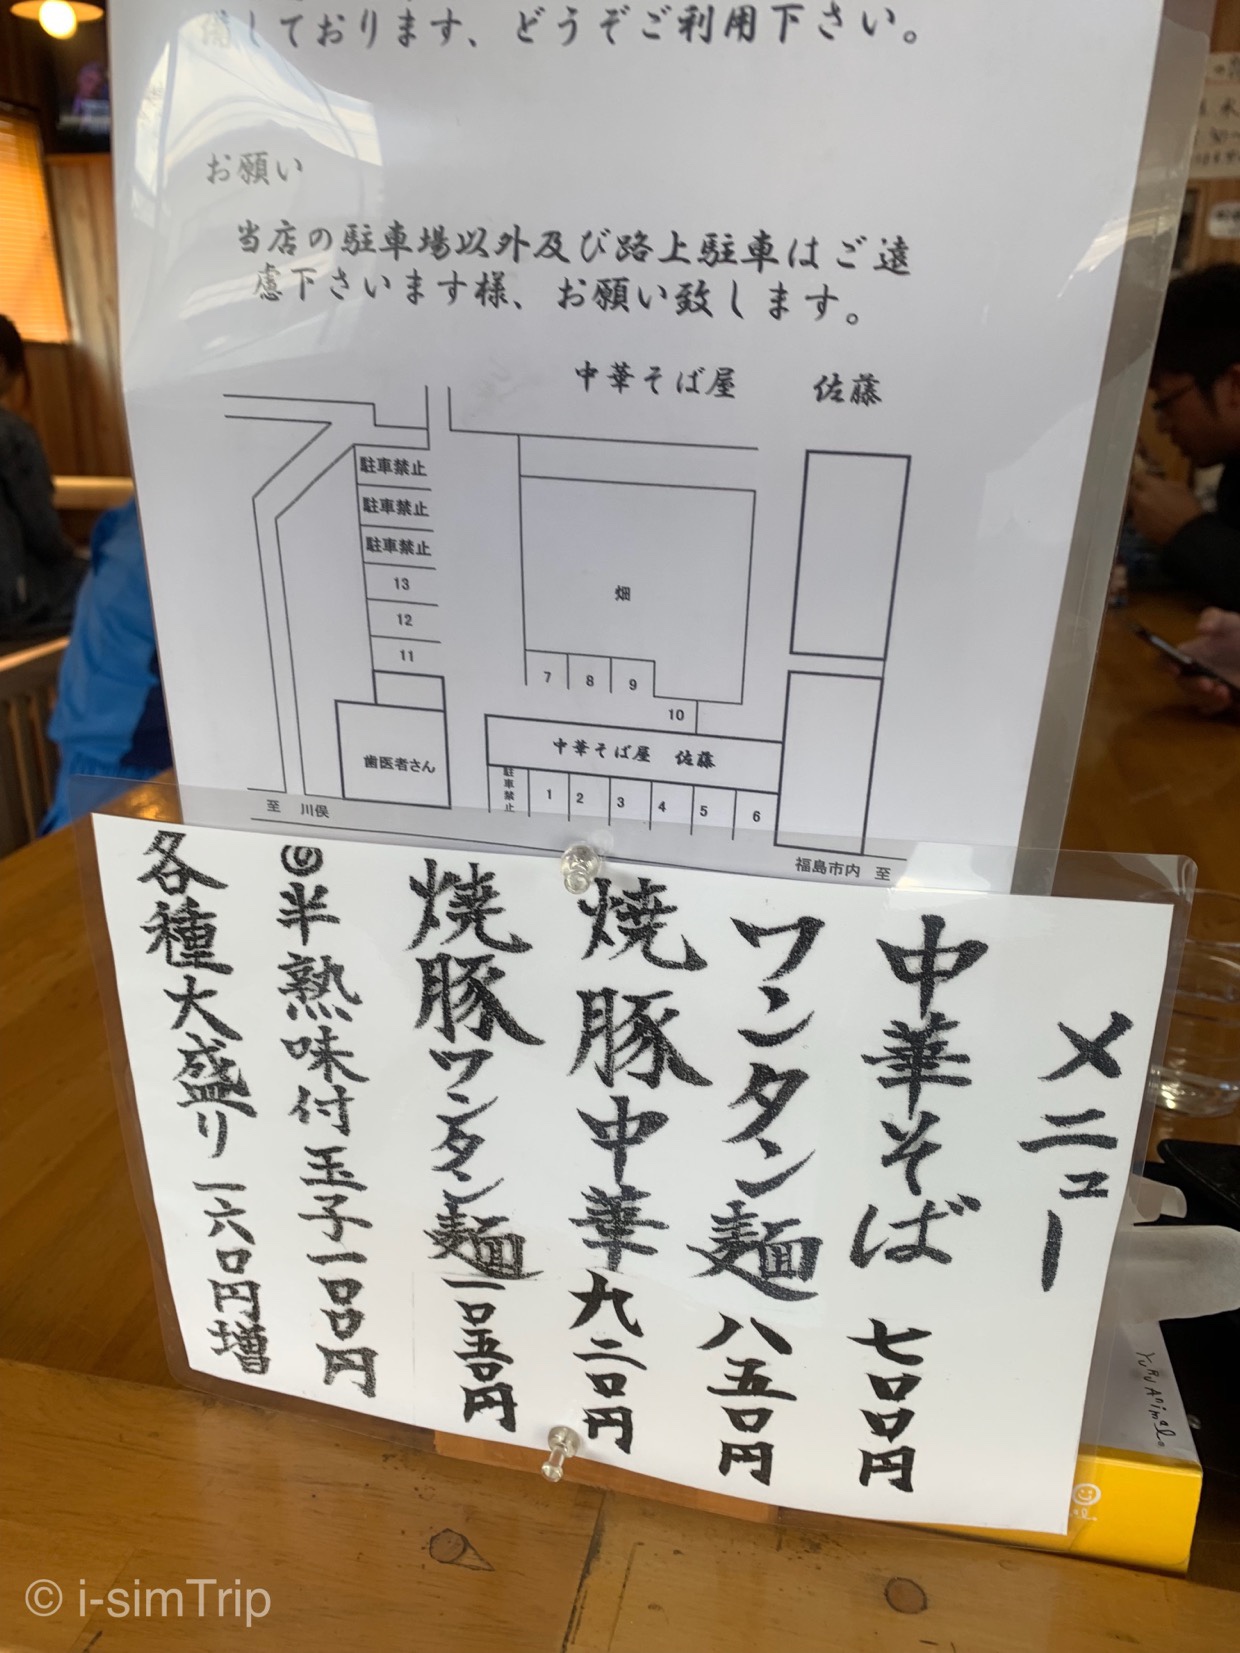 備しております、どうぞご利用下さい。
お願い
当店の駐車場以外及び路上駐車はご遠
慮下さいます様、お願い致します。
中華そば屋 佐藤
駐車禁止
駐車禁止
駐車禁止
13
12
11
畑
7 8 9
10
歯医者さん
中華そば屋 佐藤
駐車禁止 1 2 3 4 5 6
至 川俣
福島市内 至
メニュー
中華そば 七〇〇円
ワンタン麺 八五〇円
焼豚中華 九二〇円
焼豚ワンタン麺 一〇五〇円
半熟味付玉子 一〇〇円
各種大盛り 一六〇円増
YURU Animal
© i-simTrip